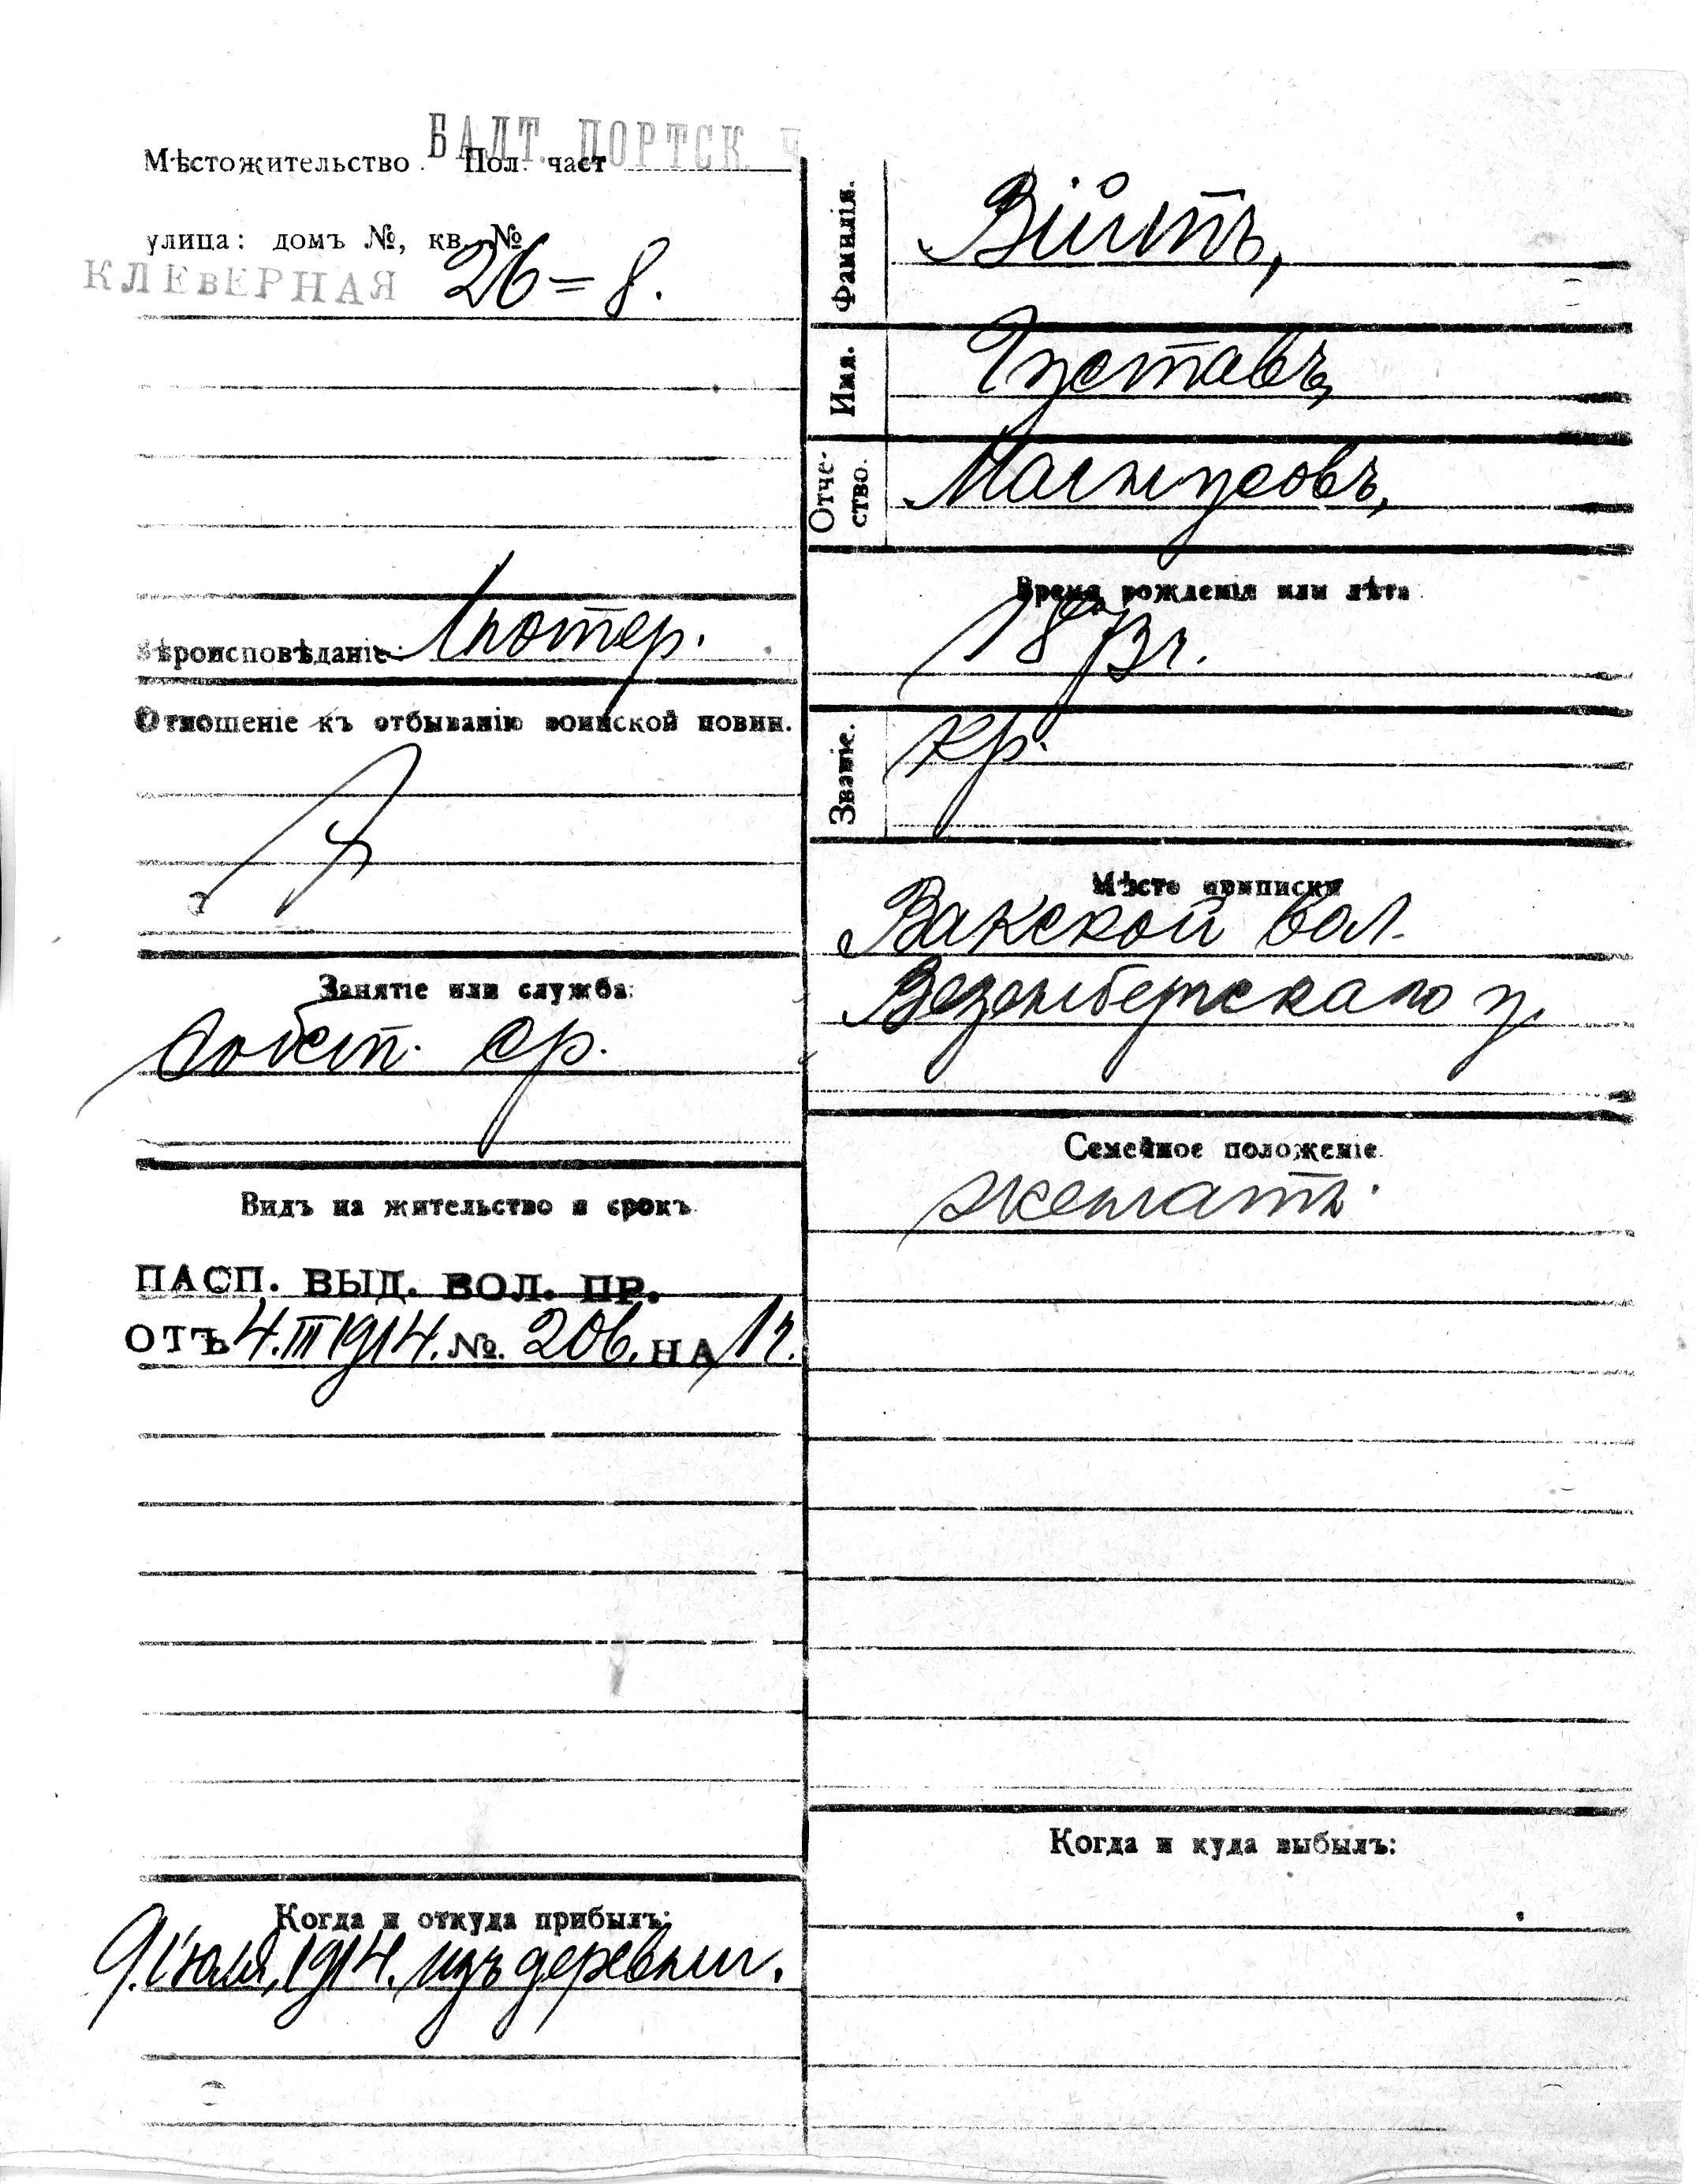 БАЛТ. ПОРТСК. Ч
Мѣстожительство. Пол. част
улица: домъ №, кв. №
КЛЕВЕРНАЯ 26=8.
Вѣроисповѣданіе: Лютер.
Отношеніе къ отбыванію воинской повин.
Занятіе или служба:
Собст. ср.
Видъ на жительство и срокъ
ПАСП. ВЫД. ВОЛ. ПР.
ОТЪ 4.III 1914. №. 206. НА 1 г.
Когда и откуда прибылъ:
9. Іюля, 1914. изъ деревни.
Фамилія. Війтъ,
Имя. Густавъ,
Отче-
ство. Магнусовъ,
Время рожденія или лѣта
1873 г.
Званіе. кр.
Мѣсто приписки
Вакской вол.
Везенбергскаго у.
Семейное положеніе.
женатъ.
Когда и куда выбылъ: